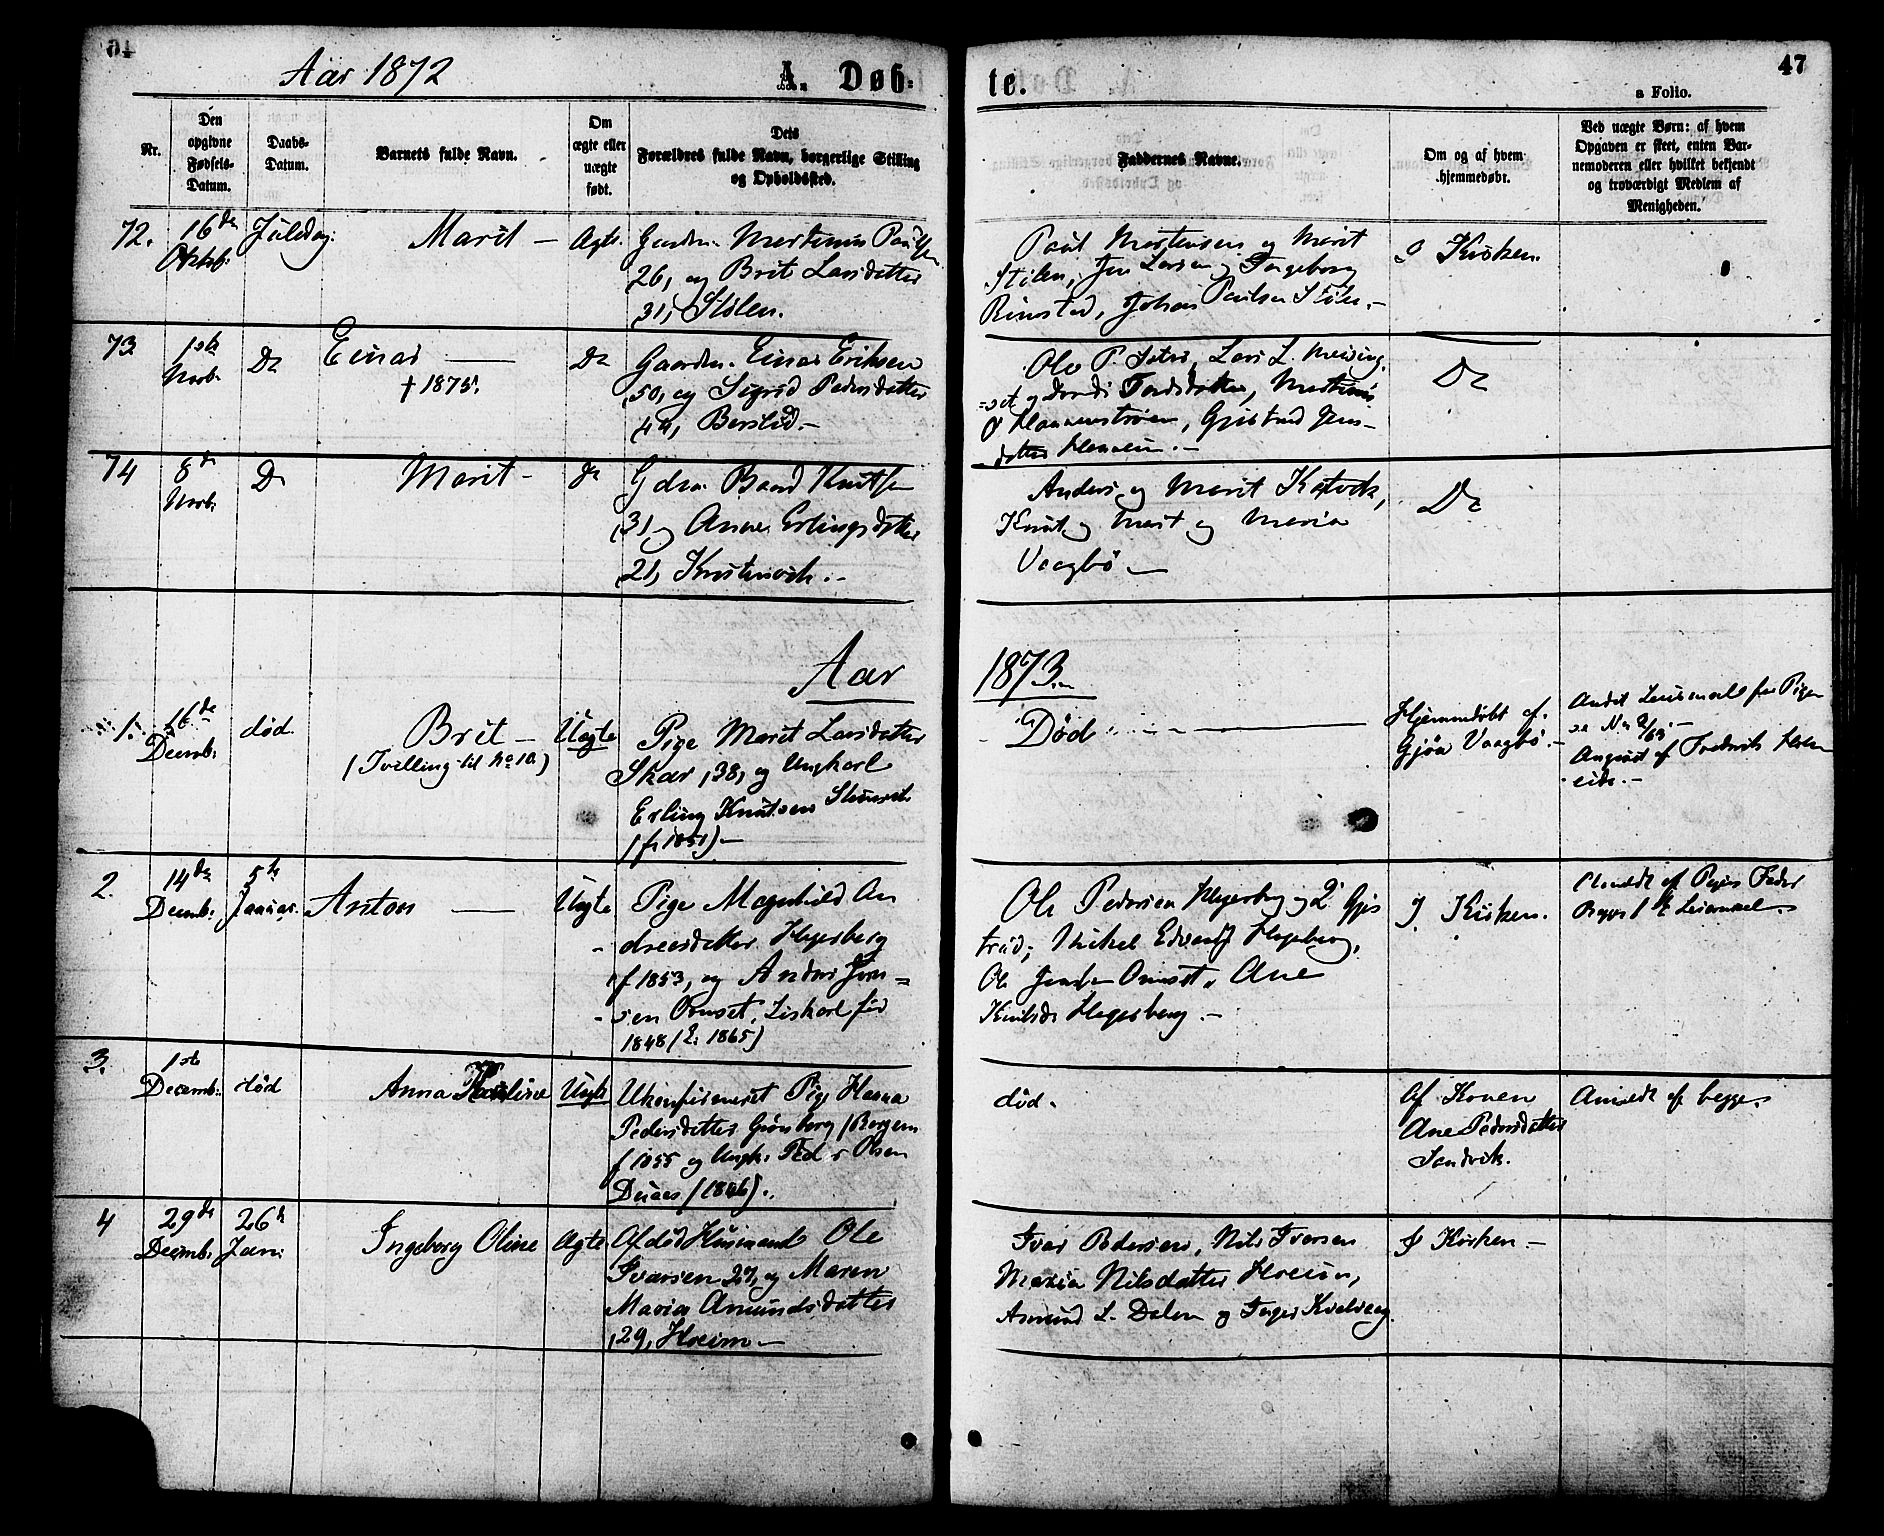 Aar 1872
A. Døb-
te.
47
a Folio.
Nr.
Den opgivne Fødsels-Datum.
Daabs-Datum.
Barnets fulde Navn.
Om ægte eller uægte født.
Dets Forældres fulde Navn, borgerlige Stilling og Opholdssted.
Faddernes Navne.
Om og af hvem hjemmedøbt.
Ved uægte Børn: af hvem Opgaven er skeet, enten Barnemoderen eller hvilket bekjendt og troværdigt Medlem af Menigheden.
72.
16de Oktob.
Juledag.
Marit —
Ægte.
Gaardm. Martinus Paulsen
26, og Brit Larsdatter
31, Stølen.
Paul Mortensen og Marit
Stølen, Jon Larsen og Ingeborg
Rimstad, Johan Paulsen Stølen. —
I Kirken.
73
1ste Novb.
Do
Einar —
† 1875.
Do
Gaardm. Einar Eriksen
50, og Sigrid Pedersdatter
44, Berslid. —
Ole P. Lars L. Meising-
=set og Tordsdatter,
Gjertrud Jens-
datter
Do
74
8de Novb.
Do
Marit —
Do
Gdm. Baard Knutsen
31 og Anne Erlingsdatter
21, Kristenvik. —
Anders og Marit Katvik,
Knut og Marit og Maria
Vaagbø —
Do
Aar
1873. —
1.
16de Decmb.
død.
Brit —
(Tvilling til No 10)
Uægte
Pige Marit Larsdatter
Skar, 38, og Ungkarl
Erling Knutsen
(f. 1851) —
Død —
Hjemmedøbt af
Gjøa Vaagbø. —
Andet Leiermaal for Pigen
se No
Angivet af Fredrik
eide. —
2.
14de Decmb.
5te Januar.
Anton —
Uægte
Pige Magnhild An
dreasdatter Hegerberg
f 1853, og Anders Jon=
sen Ormset, født
1848 (L. 1865)
Ole Pedersen Hegerberg og Gjer
trud, Mikal Edvard Hegerberg,
Ole Jonsen Ormset, Ane
Knutsdr Hegerberg. —
I Kirken.
Anmeldt af Pigens Fader
Begges 1ste Leiermaal.
3.
1ste Decemb.
død
Anna Karoline
Uægte
Ukonfirmeret Pige Hanna
Pedersdatter Grønborg (Bergem
f 1855 og Ungk. Peder Olsen
(1846).
død.
Af Konen
Ane Pedersdatter
Sandvik.
Anmeldt af begge.
4
29de Decemb.
26de Jan.
Ingeborg Oline
Ægte
Afdød Husmand Ole
Ivarsen 27, og Maren
Maria Amundsdatter
29, Hoem —
Ivar Pedersen, Nils Ivarsen
Maria Nilsdatter Hoem,
Amund L. Dalen og Inger Kvalvaag.
I Kirken. —